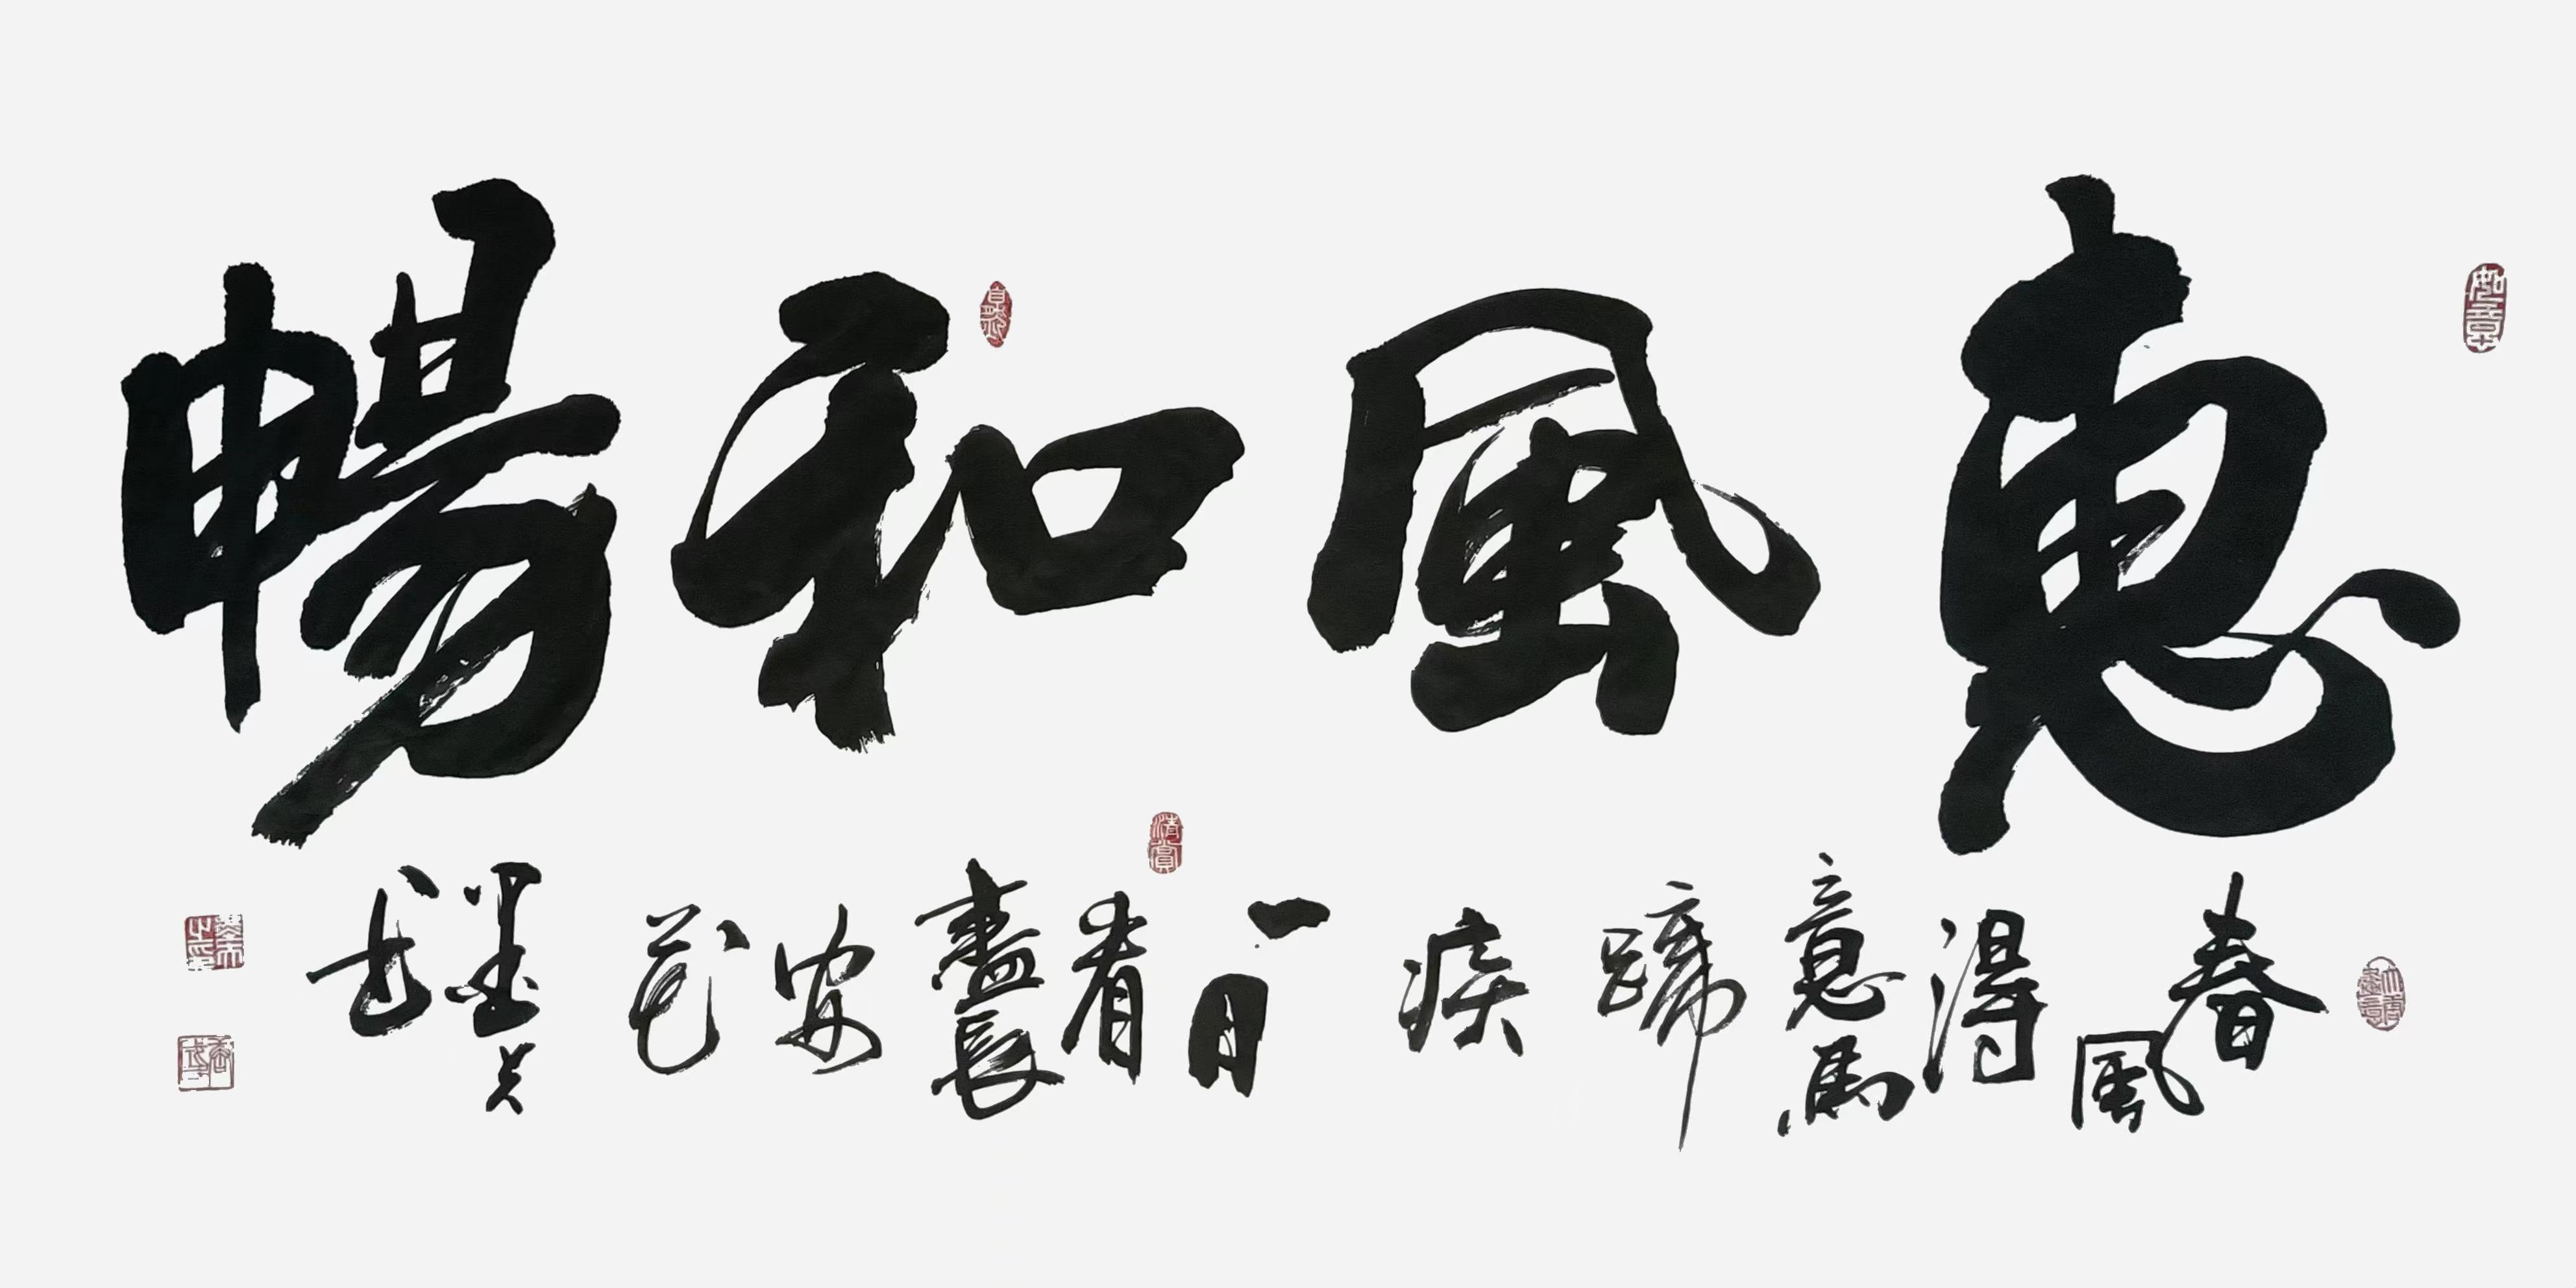 惠風和暢
春風得意馬蹄疾一日看盡長安花
如意
清賞